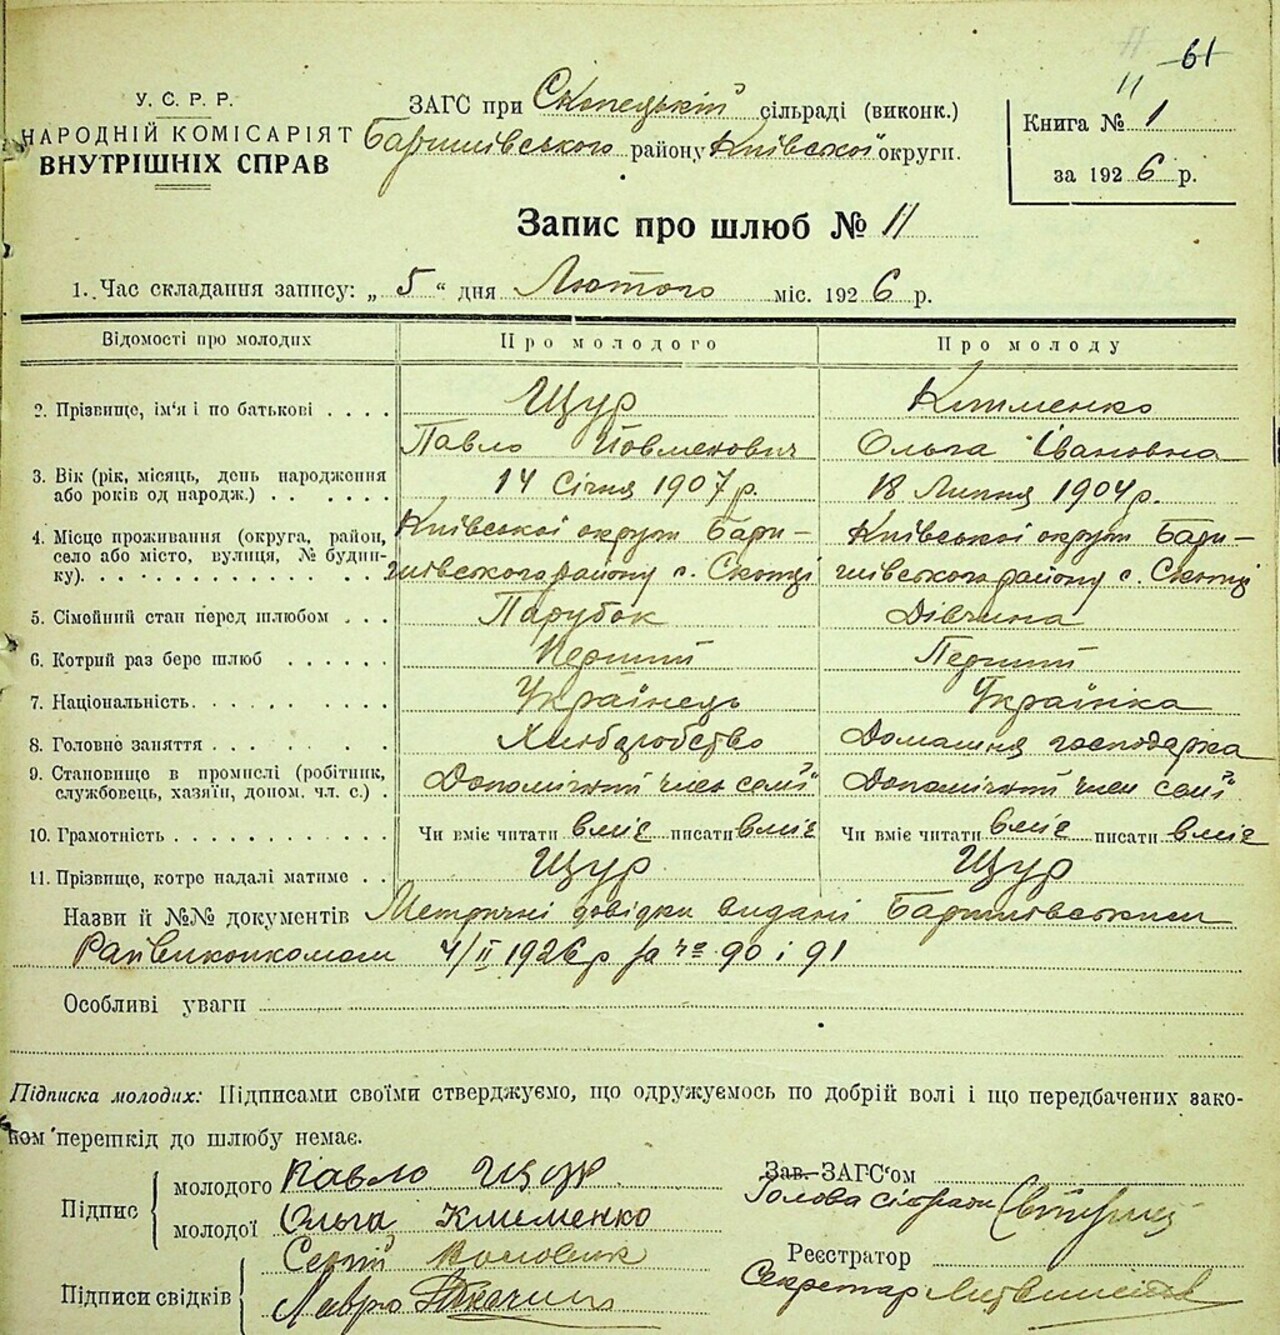 11 61
У. С. Р. Р.
НАРОДНІЙ КОМІСАРІЯТ
ВНУТРІШНІХ СПРАВ
ЗАГС при Скопецькій сільраді (виконк.)
Баришівського району Київської округи.
11
Книга № 1
за 1926 р.
Запис про шлюб № 11
1. Час складання запису: „5“ дня Лютого міс. 1926 р.
Відомості про молодих Про молодого Про молоду
2. Прізвище, ім'я і по батькові . . . . Щур Клименко
Павло Йовменович Ольга Івановна
3. Вік (рік, місяць, день народження або років од народж.) . . . . . . 14 Січня 1907 р. 18 Липня 1904 р.
4. Місце проживання (округа, район, Київської округи Бари- Київської округи Бари-
село або місто, вулиця, № будин-
ку). . . . . . . . . . . . . . шівського району с. Скопці шівського району с. Скопці
5. Сімейний стан перед шлюбом . . . Парубок Дівчина
6. Котрий раз бере шлюб . . . . . . Перший Перший
7. Національність. . . . . . . . . . Українець Українка
8. Головне заняття . . . . . . . . Хліборобство Домашня господарка
9. Становище в промислі (робітник,
службовець, хазяїн, допом. чл. с.) . Допомічний член семії Допомічний член семії
10. Грамотність . . . . . . . . . . . Чи вміє читати вміє писати вміє Чи вміє читати вміє писати вміє
11. Прізвище, котре надалі матиме . . Щур Щур
Назви й №№ документів Метричні довідки видані Баришівським
Райвиконкомом 4/II 1926 р за № 90 і 91
Особливі уваги
Підписка молодих: Підписами своїми стверджуємо, що одружуємось по добрій волі і що передбачених зако-
ном перешкід до шлюбу немає.
Підпис
молодого Павло Щур
молодої Ольга Клименко
Зав. ЗАГС'ом
Голова сільради
Підписи свідків
Сергій Воловик
Лавро
Реєстратор
Секретар